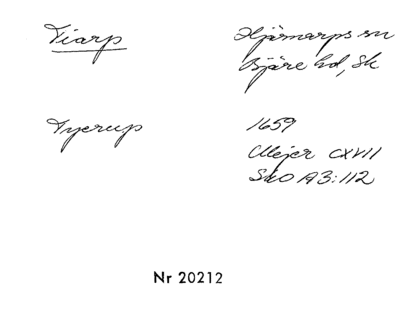 Tiarp
Hjärnarps sn
Bjäre hd, Sk
Tyerup
1659
Mejer CXVII
SkO A3:112
Nr 20212